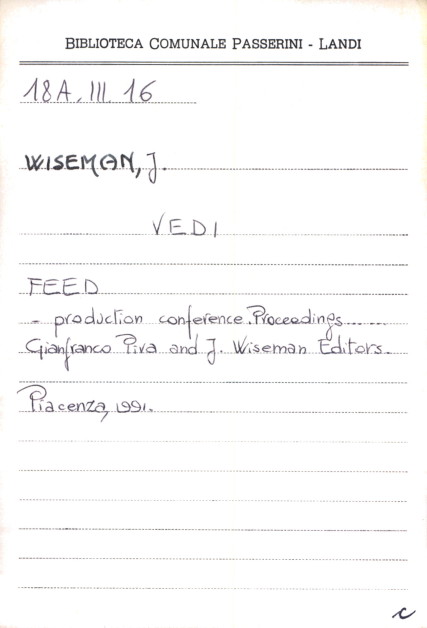 BIBLIOTECA COMUNALE PASSERINI - LANDI
18A. III. 16
WISEMAN, J.
VEDI
FEED
- production conference. Proceedings......
Gianfranco Piva and J. Wiseman Editors.
Piacenza, 1991.
c